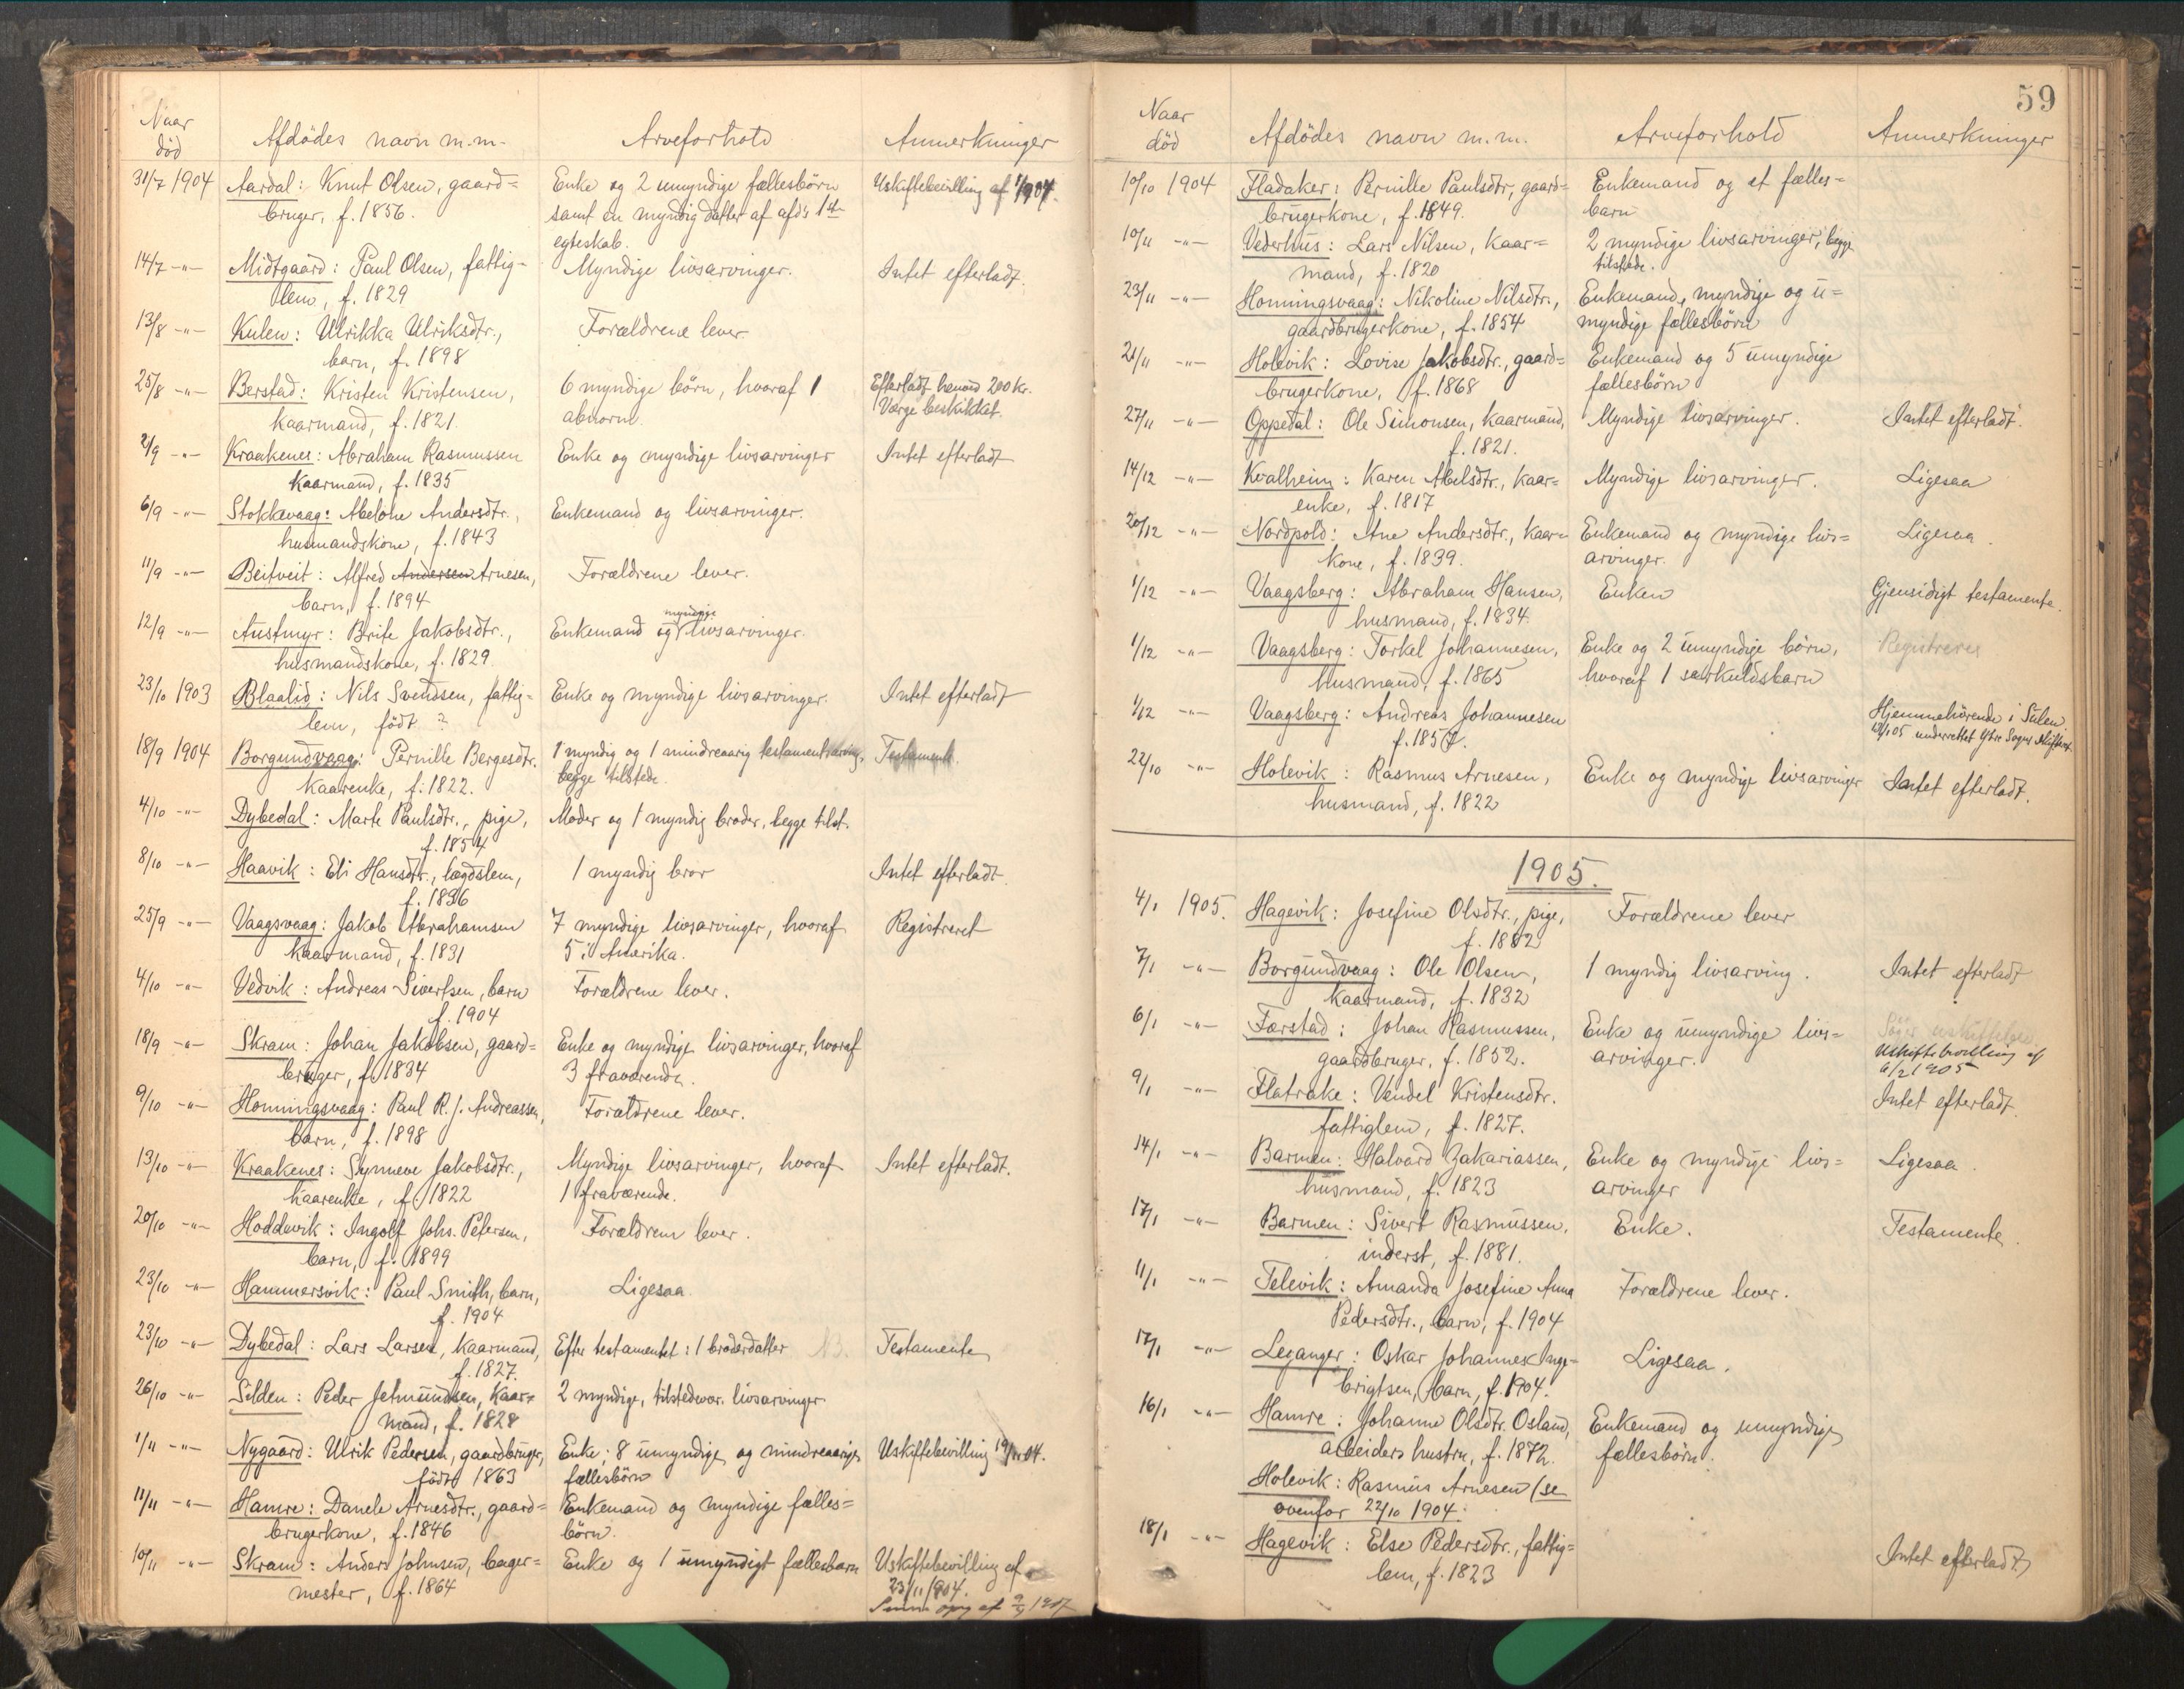 Naar
död
Afdödes navn m.m.
Arveforhold
Anmerkninger
31/7 1904 Aardal: Knut Olsen, gaard= Enke og 2 umyndige fællesbörn Uskiftebevilling af
bruger, f. 1856. samt en myndig datter af afd's 1ste
egteskab.
14/7 -"- Midtgaard: Paul Olsen, fattig= Myndige livsarvinger. Intet efterladt.
lem, f. 1829
13/8 -"- Kulen: Ulrikka Ulriksdtr., Forældrene lever.
barn, f. 1898
25/8 -"- Berstad: Kristen Kristensen, 6 myndige börn, hvoraf 1 Efterladt henved 200 kr.
kaarmand, f. 1821. abnorm. Værge beskikket.
2/9 -"- Kraakenes: Abraham Rasmussen Enke og myndige livsarvinger Intet efterladt
kaarmand, f. 1835
6/9 -"- Stokkevaag: Abelone Andersdtr., Enkemand og livsarvinger.
husmandskone, f. 1843
11/9 -"- Beitveit: Alfred Andersen Arnesen, Forældrene lever.
barn, f. 1894
12/9 -"- Austmyr: Brite Jakobsdtr., Enkemand og myndige livsarvinger.
husmandskone, f. 1829.
23/10 1903 Blaalid: Nils Svendsen, fattig= Enke og myndige livsarvinger. Intet efterladt
lem, födt ?
18/9 1904 Borgundvaag: Pernille Bergesdtr. 1 myndig og 1 mindreaarig testamentsarving, Testamente.
kaarenke, f. 1822. begge tilstede.
4/10 -"- Dybedal: Marte Paulsdtr., pige, Moder og 1 myndig broder, begge tilst.
f. 1854
8/10 -"- Haavik: Eli Hansdtr., lægdslem, 1 myndig bror Intet efterladt.
f. 1836
25/9 -"- Vaagsvaag: Jakob Abrahamsen 7 myndige livsarvinger, hvoraf Registreret
kaarmand, f. 1831 5 i Amerika.
4/10 -"- Vedvik: Andreas Sivertsen, barn Forældrene lever.
f. 1904
18/9 -"- Skram: Johan Jakobsen, gaard= Enke og myndige livsarvinger, hvoraf
bruger, f. 1834 3 fraværende.
9/10 -"- Honningsvaag: Paul R. J. Andreassen, Forældrene lever.
barn, f. 1898
13/10 -"- Kraakenes: Synneve Jakobsdtr., Myndige livsarvinger, hvoraf Intet efterladt.
kaarenke, f. 1822 1 fraværende.
20/10 -"- Hoddevik: Ingolf Johs. Petersen, Forældrene lever.
barn, f. 1899
23/10 -"- Hammersvik: Paul Smith, barn, Ligesaa
f. 1904
23/10 -"- Dybedal: Lars Larsen, kaarmand, Efter testamentet: 1 broderdatter NB. Testamente
f. 1827.
26/10 -"- Silden: Peder Jetmundsen, kaar= 2 myndige, tilstedevær. livsarvinger.
mand, f. 1828
1/11 -"- Nygaard: Ulrik Pedersen, gaardbruger, Enke; 8 umyndige og mindreaarige Uskiftebevilling
födt 1863 fællesbörn
11/11 -"- Hamre: Danele Arnesdtr., gaard= Enkemand og myndige fælles=
brugerkone, f. 1846 börn.
10/11 -"- Skram: Anders Johnsen, bager= Enke og 1 umyndigt fællesbarn Uskiftebevilling af
mester, f. 1864 23/11 1904.
59
Naar
död
Afdödes navn m.m.
Arveforhold
Anmerkninger
10/10 1904 Fladaker: Pernille Paulsdtr, gaard= Enkemand og et fælles=
brugerkone, f. 1849. barn
10/11 -"- Vederhus: Lars Nilsen, kaar= 2 myndige livsarvinger, begge
mand, f. 1820 tilstede.
23/11 -"- Honningsvaag: Nikoline Nilsdtr., Enkemand, myndige og u=
gaardbrugerkone, f. 1854 myndige fællesbörn
21/11 -"- Holevik: Lovise Jakobsdtr., gaard= Enkemand og 5 umyndige
brugerkone, f. 1868 fællesbörn
27/11 -"- Oppedal: Ole Simonsen, kaarmand, Myndige livsarvinger. Intet efterladt.
f. 1821.
14/12 -"- Kvalheim: Karen Abelsdtr., kaar= Myndige livsarvinger. Ligesaa
enke, f. 1817
20/12 -"- Nordpold: Ane Andersdtr., kaar= Enkemand og myndige livs= Ligesaa.
kone, f. 1839. arvinger.
1/12 -"- Vaagsberg: Abraham Hansen, Enken Gjensidigt testamente.
husmand, f. 1834.
1/12 -"- Vaagsberg: Torkel Johannesen, Enke og 2 umyndige börn, Registreres
husmand, f. 1865 hvoraf 1 særkuldsbarn
1/12 -"- Vaagsberg: Andreas Johannesen Hjemmehörende i Sulen
f. 1857. underrettet Ytre Sogns Skifteret.
22/10 -"- Holevik: Rasmus Arnesen, Enke og myndige livsarvinger Intet efterladt.
husmand, f. 1822
1905.
4/1 1905. Hagevik: Josefine Olsdtr., pige, Forældrene lever
f. 1882
7/1 -"- Borgundvaag: Ole Olsen, 1 myndig livsarving. Intet efterladt
kaarmand, f. 1832
6/1 -"- Færstad: Johan Rasmussen, Enke og umyndige livs= Söger uskiftebev.
gaardbruger, f. 1852. arvinger. Uskiftebevilling af
6/2 1905
9/1 -"- Flatrake: Vendel Kristensdtr. Intet efterladt.
fattiglem, f. 1827.
14/1 -"- Barmen: Halvard Zakariassen, Enke og myndige livs= Ligesaa.
husmand, f. 1823 arvinger
17/1 -"- Barmen: Sivert Rasmussen, Enke. Testamente.
inderst, f. 1881.
11/1 -"- Televik: Amanda Josefine Anna Forældrene lever.
Pedersdtr., barn, f. 1904
17/1 -"- Leganger: Oskar Johannes Inge= Ligesaa.
brigtsen, barn, f. 1904.
16/1 -"- Hamre: Johanne Olsdtr. Osland, Enkemand og umyndige
arbeiders hustru, f. 1872. fællesbörn.
Holevik: Rasmus Arnesen (se
ovenfor 22/10 1904.
18/1 -"- Hagevik: Else Pedersdtr., fattig= Intet efterladt
lem, f. 1823